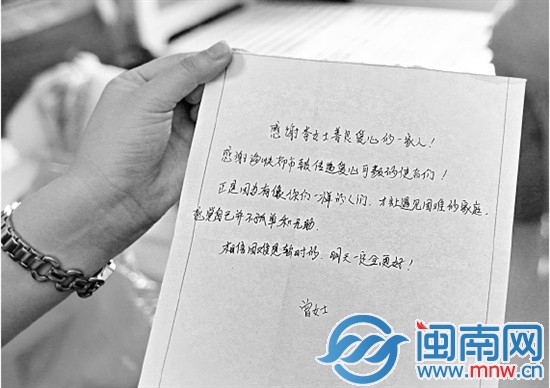 感谢李女士善良爱心的一家人!
感谢海峡都市报传递爱心可敬的使者们!
正是因为有像你们一样的人们,才让遇见困难的家庭,
感觉自己并不孤单和无助.
相信困难是暂时的,明天一定会更好!
曾女士
闽南网
www.mnw.cn